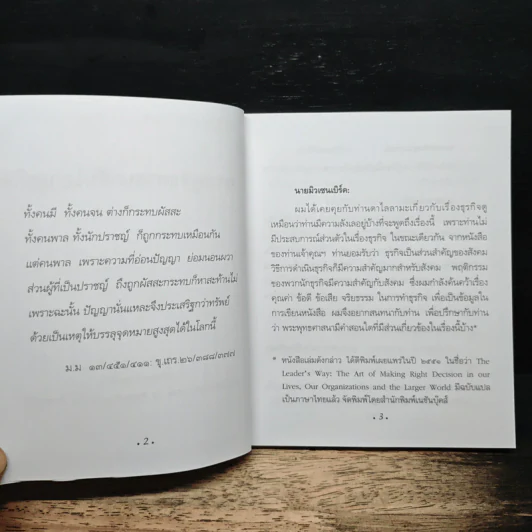 ทั้งคนมี ทั้งคนจน ต่างก็กระทบผัสสะ
ทั้งคนพาล ทั้งนักปราชญ์ ก็ถูกกระทบเหมือนกัน
แต่คนพาล เพราะความที่อ่อนปัญญา ย่อมนอนผวา
ส่วนผู้ที่เป็นปราชญ์ ถึงถูกผัสสะกระทบก็หาสะท้านไม่
เพราะฉะนั้น ปัญญานั่นแหละจึงประเสริฐกว่าทรัพย์
ด้วยเป็นเหตุให้บรรลุจุดหมายสูงสุดได้ในโลกนี้
ม.ม ๑๓/๔๕๑/๔๑๑: ขุ.เถร.๒๖/๓๘๘/๓๗๗
• 2 •
นายมิวเซนเบิร์ค:
ผมได้เคยคุยกับท่านดาไลลามะเกี่ยวกับเรื่องธุรกิจดู
เหมือนว่าท่านมีความลังเลอยู่บ้างที่จะพูดถึงเรื่องนี้ เพราะท่านไม่
มีประสบการณ์ส่วนตัวในเรื่องธุรกิจ ในขณะเดียวกัน จากหนังสือ
ของท่านเจ้าคุณฯ ท่านยอมรับว่า ธุรกิจเป็นส่วนสำคัญของสังคม
วิธีการดำเนินธุรกิจก็มีความสำคัญมากสำหรับสังคม พฤติกรรม
ของพวกนักธุรกิจมีความสำคัญกับสังคม ซึ่งผมกำลังค้นคว้าเรื่อง
คุณค่า ข้อดี ข้อเสีย จริยธรรม ในการทำธุรกิจ เพื่อเป็นข้อมูลใน
การเขียนหนังสือ ผมจึงอยากสนทนากับท่าน เพื่อปรึกษากับท่าน
ว่า พระพุทธศาสนามีคำสอนใดที่มีส่วนเกี่ยวข้องในเรื่องนี้บ้าง*
* หนังสือเล่มดังกล่าว ได้ตีพิมพ์เผยแพร่ในปี ๒๕๕๑ ในชื่อว่า The
Leader's Way: The Art of Making Right Decision in our
Lives, Our Organizations and the Larger World มีฉบับแปล
เป็นภาษาไทยแล้ว จัดพิมพ์โดยสำนักพิมพ์เนชั่นบุ๊คส์
• 3 •